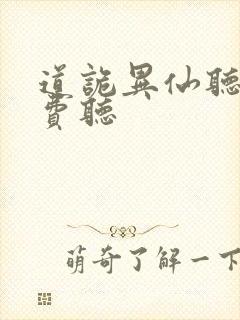 道詭異仙聽
費聽
萌奇了解一下